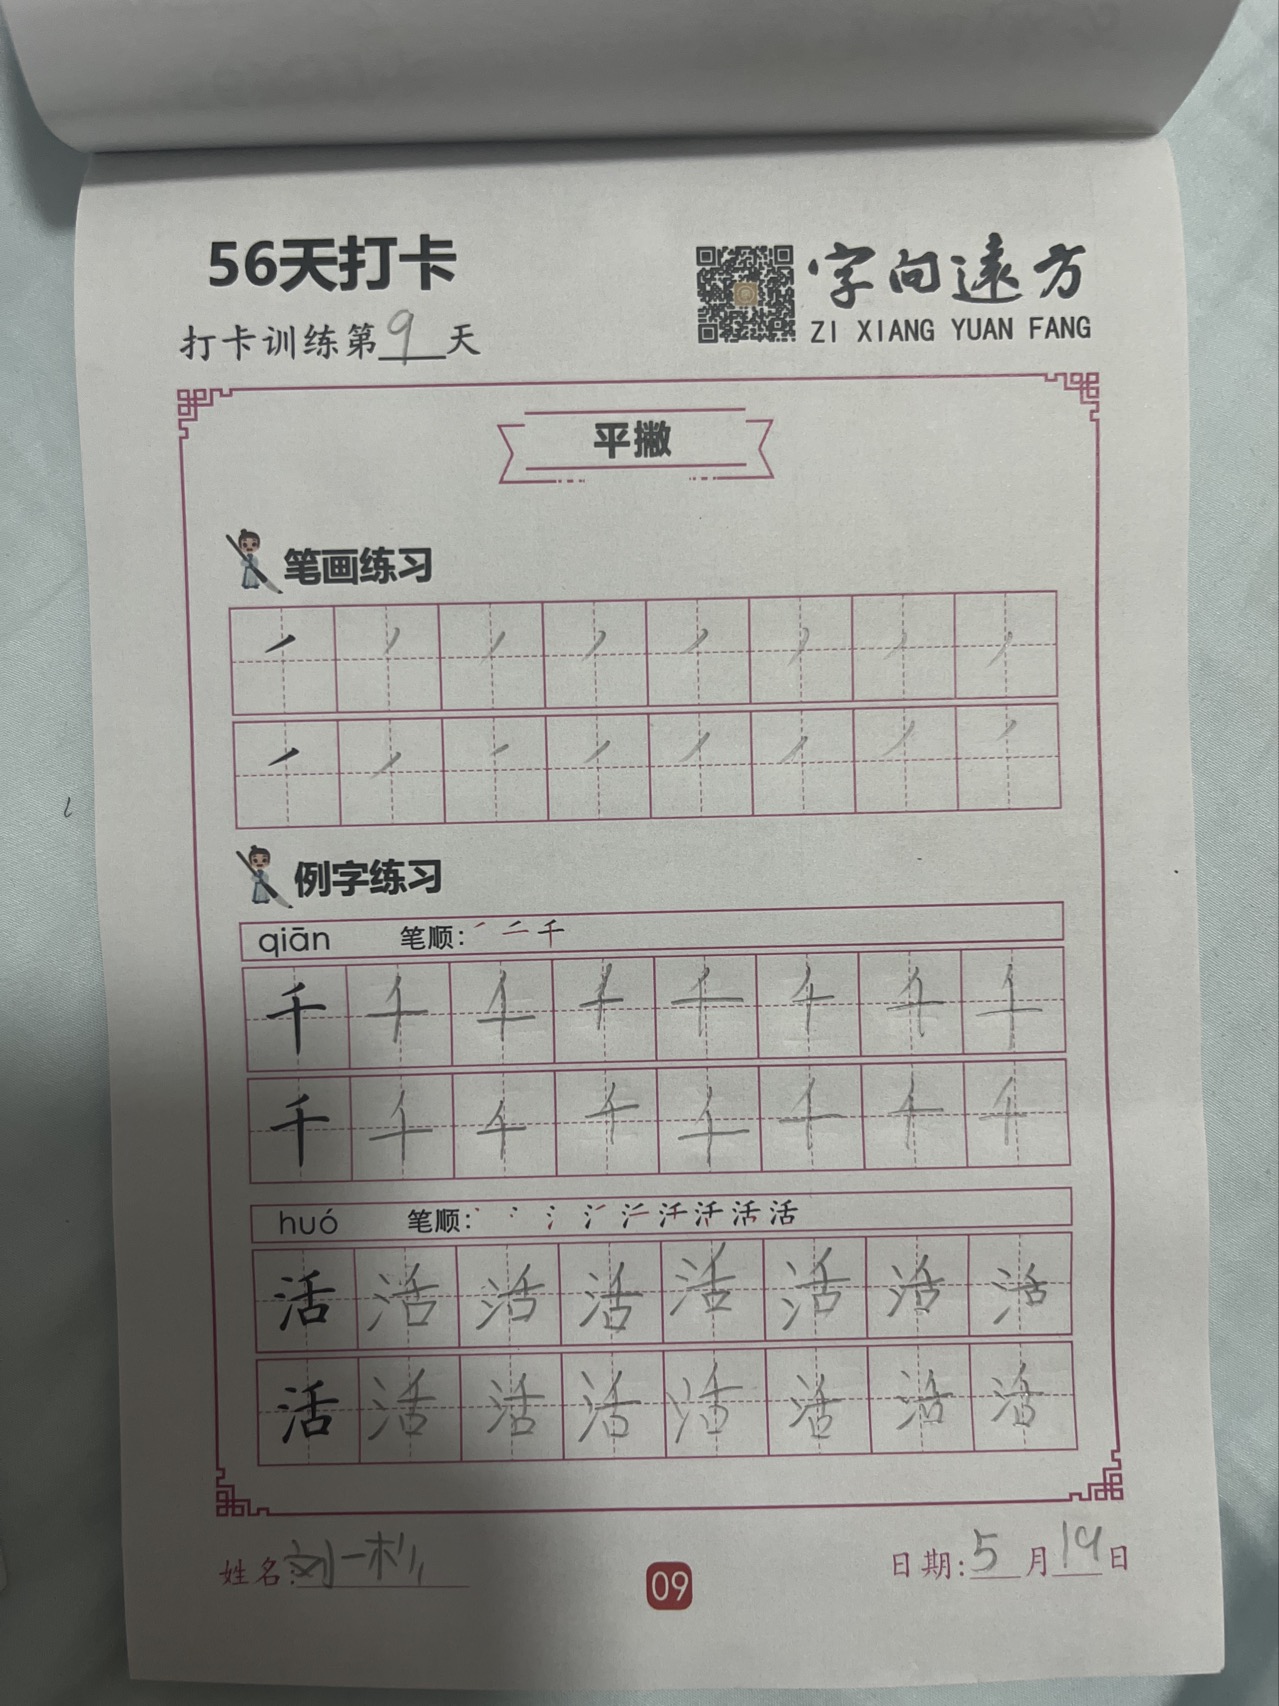 56天打卡
字向遠方
ZI XIANG YUAN FANG
打卡训练第9天
平撇
笔画练习
例字练习
qiān 笔顺: 千
千 千 千 千 千 千 千 千
千 千 千 千 千 千 千 千
huó 笔顺: 活 活 活
活 活 活 活 活 活 活 活
活 活 活 活 活 活 活 活
姓名:刘一杉
09
日期:5月19日